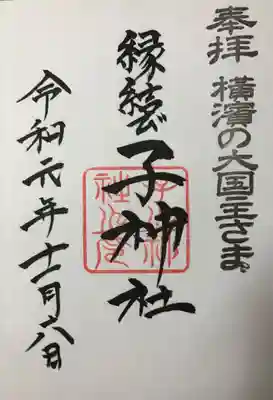 奉拝 横濱の大国主さま
縁結び 子神社
令和元年十一月六日